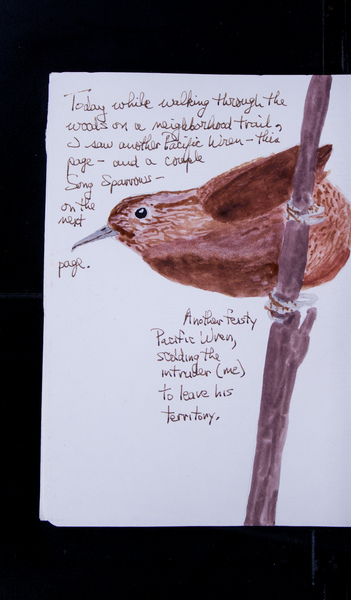 Today while walking through the
woods on a neighborhood trail,
I saw another Pacific Wren - this
page - and a couple
Song Sparrows -
on the
next
page.
Another feisty
Pacific Wren,
scolding the
intruder (me)
to leave his
territory.